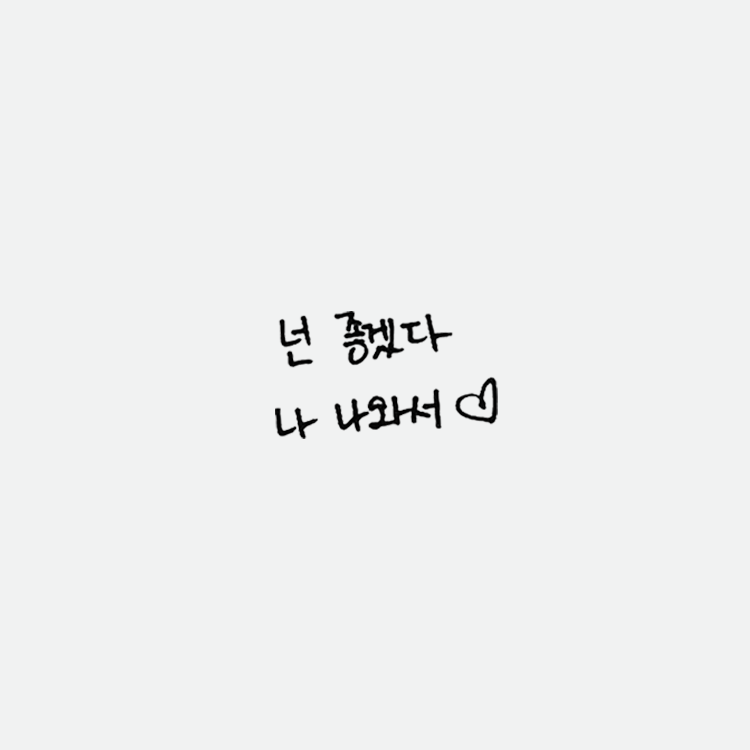 넌 좋겠다
나 나와서♡